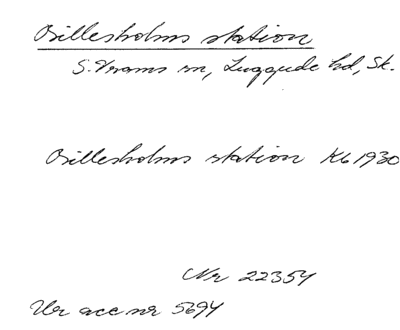 Billesholms station
S. Vrams sn, Luggude hd, Sk.
Billesholms station Kb 1930
Nr 22354
Ur acc nr 5694